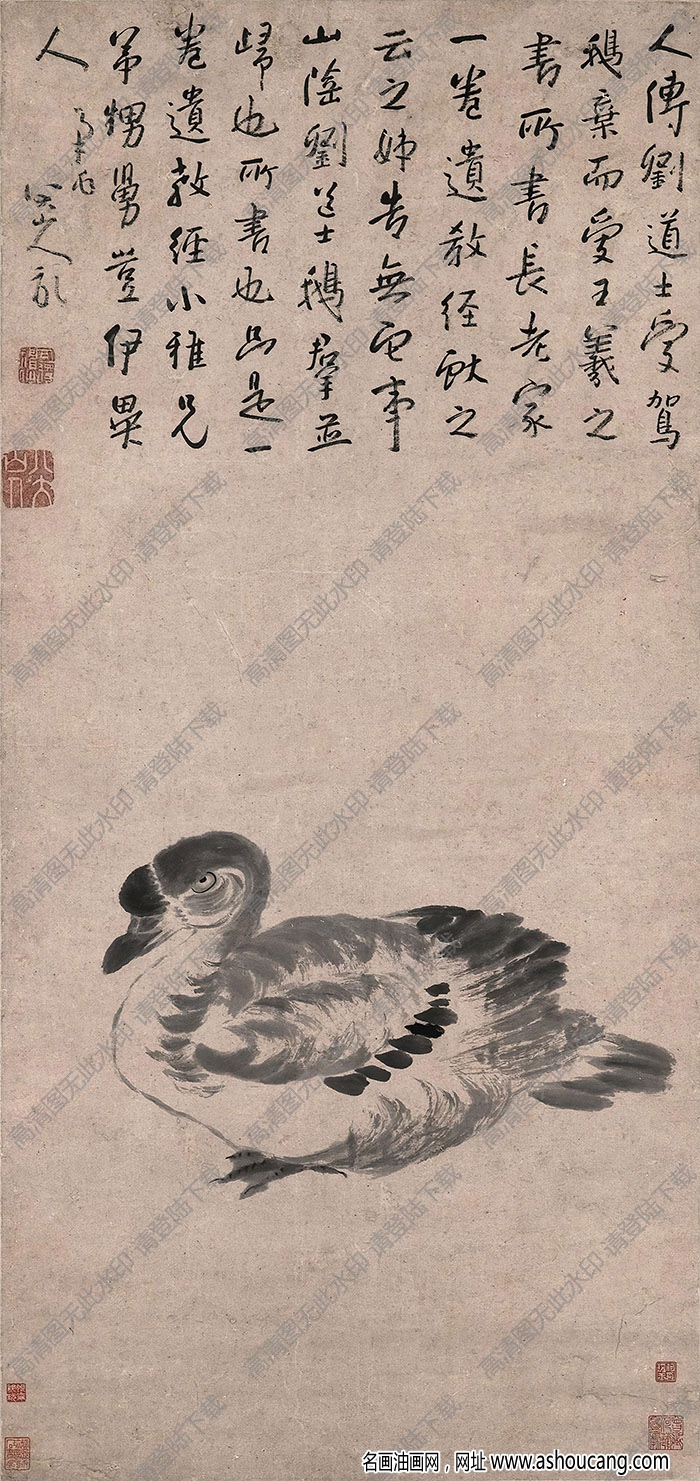 人傳劉道士愛駕
鵝棄而愛王羲之
書所書長老家
一卷遺教経獻之
云之姊告無它事
山陰劉道士鵝羣並
歸也所書也只是一
卷遺教経小雅兄
弟甥舅豈伊異
人
八山人
高清图无此水印 请登陆下载
名画油画网,网址 www.ashoucang.com